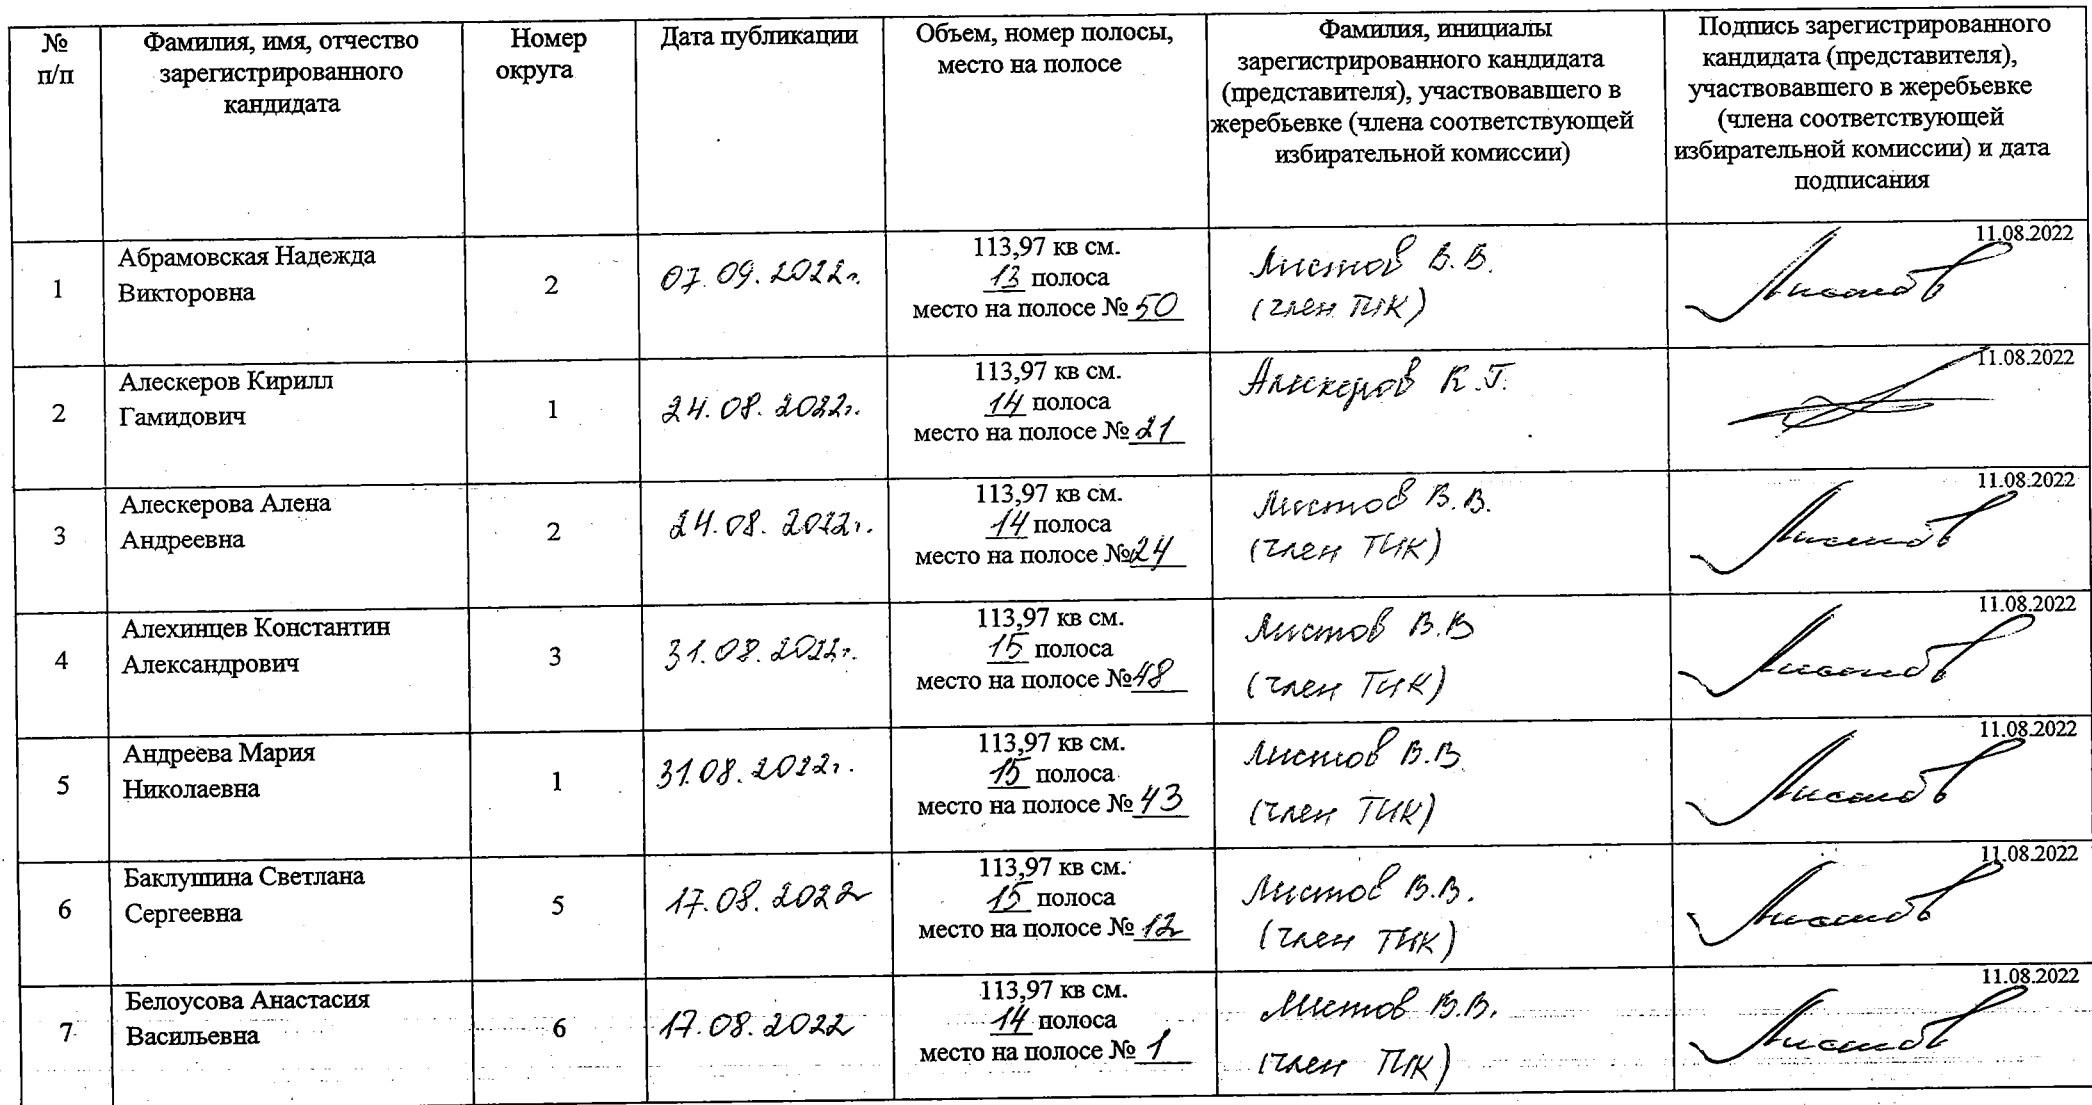 №
п/п
Фамилия, имя, отчество
зарегистрированного
кандидата
Номер
округа
Дата публикации
Объем, номер полосы,
место на полосе
Фамилия, инициалы
зарегистрированного кандидата
(представителя), участвовавшего в
жеребьевке (члена соответствующей
избирательной комиссии)
Подпись зарегистрированного
кандидата (представителя),
участвовавшего в жеребьевке
(члена соответствующей
избирательной комиссии) и дата
подписания
1
Абрамовская Надежда
Викторовна
2
07.09.2022г.
113,97 кв см.
13 полоса
место на полосе № 50
Листов В.В.
(член ТИК)
11.08.2022
Листов
2
Алескеров Кирилл
Гамидович
1
24.08.2022г.
113,97 кв см.
14 полоса
место на полосе № 21
Алескеров К.Г.
11.08.2022
3
Алескерова Алена
Андреевна
2
24.08.2022г.
113,97 кв см.
14 полоса
место на полосе № 24
Листов В.В.
(член ТИК)
11.08.2022
Листов
4
Алехинцев Константин
Александрович
3
31.08.2022г.
113,97 кв см.
15 полоса
место на полосе № 48
Листов В.В
(член ТИК)
11.08.2022
Листов
5
Андреева Мария
Николаевна
1
31.08.2022г.
113,97 кв см.
15 полоса
место на полосе № 43
Листов В.В.
(член ТИК)
11.08.2022
Листов
6
Баклушина Светлана
Сергеевна
5
17.08.2022
113,97 кв см.
15 полоса
место на полосе № 12
Листов В.В.
(член ТИК)
11.08.2022
Листов
7
Белоусова Анастасия
Васильевна
6
17.08.2022
113,97 кв см.
14 полоса
место на полосе № 1
Листов В.В.
(член ТИК)
11.08.2022
Листов